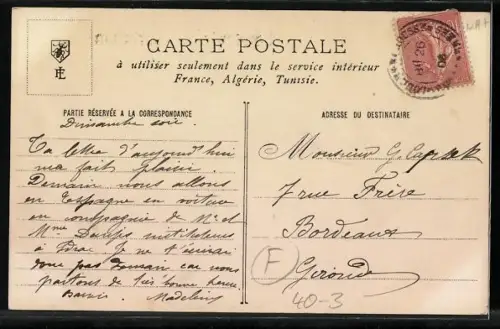 CARTE POSTALE
à utiliser seulement dans le service intérieur
France, Algérie, Tunisie.
PARTIE RÉSERVÉE A LA CORRESPONDANCE
ADRESSE DU DESTINATAIRE
Dimanche soir
Ta lettre d'aujourd'hui
me fait plaisir.
Demain nous allons
en Espagne en voiture
en compagnie de Mr et
Mme instituteurs
à Je ne t'écrirai
donc pas demain car nous
partons de très bonne heure.
Madeleine
Monsieur G.
7 rue Frère
Bordeaux
Gironde
F
40-3